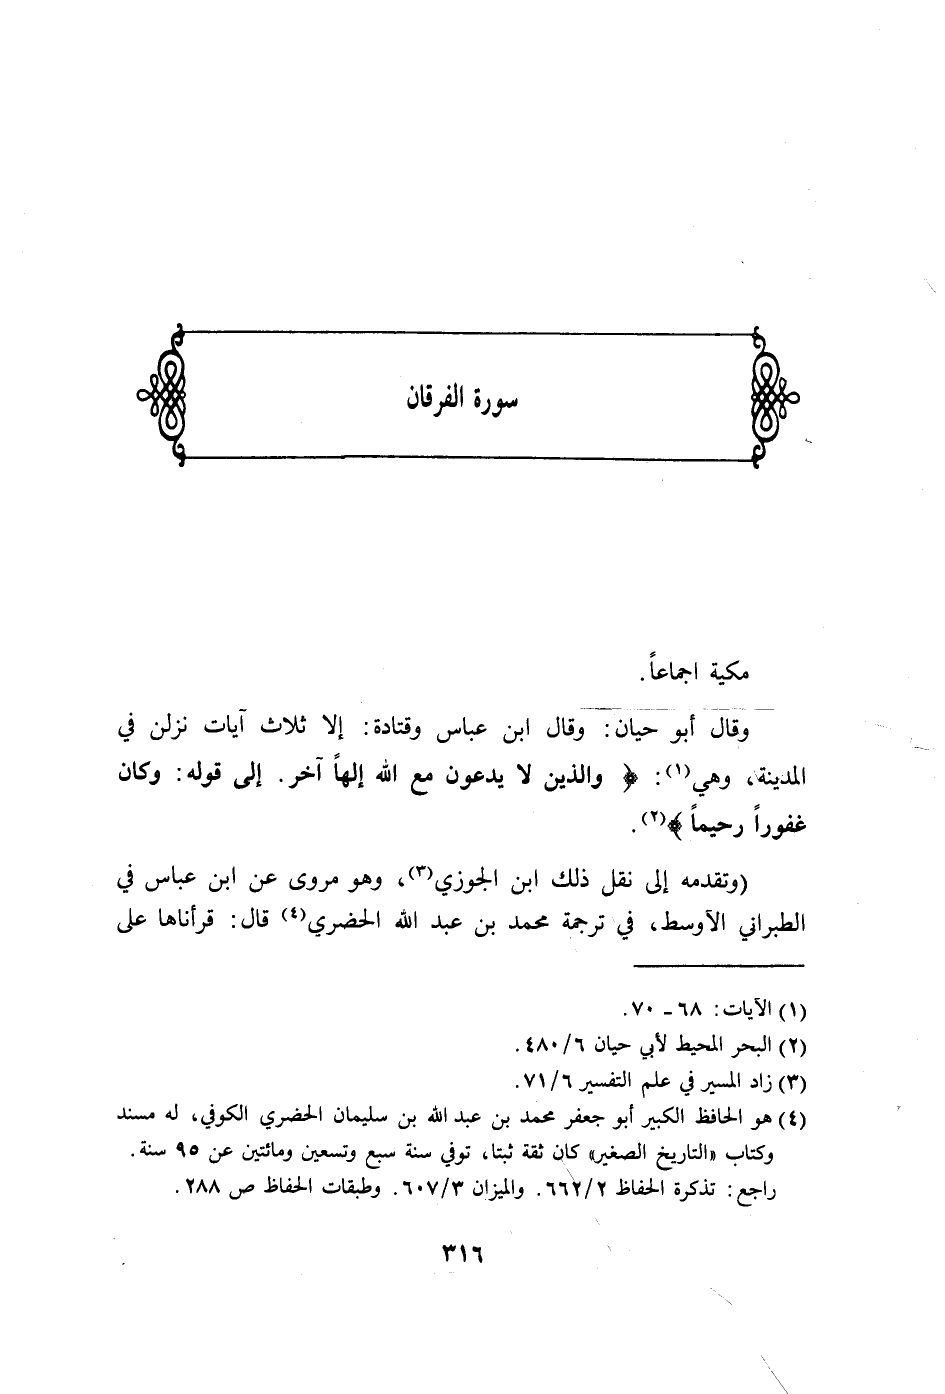 سورة الفرقان
مكية اجماعاً.
وقال أبو حيان: وقال ابن عباس وقتادة: إلا ثلاث آيات نزلن في
المدينة، وهي(١): ﴿ والذين لا يدعون مع الله إلهاً آخر. إلى قوله: وكان
غفوراً رحيماً ﴾(٢).
(وتقدمه إلى نقل ذلك ابن الجوزي(٣)، وهو مروى عن ابن عباس في
الطبراني الأوسط، في ترجمة محمد بن عبد الله الحضري(٤) قال: قرأناها على
(١) الآيات: ٦٨ ـ ٧٠.
(٢) البحر المحيط لأبي حيان ٤٨٠/٦.
(٣) زاد المسير في علم التفسير ٧١/٦.
(٤) هو الحافظ الكبير أبو جعفر محمد بن عبد الله بن سليمان الحضري الكوفي، له مسند
وكتاب «التاريخ الصغير» كان ثقة ثبتا، توفي سنة سبع وتسعين ومائتين عن ٩٥ سنة.
راجع: تذكرة الحفاظ ٦٦٢/٢. والميزان ٦٠٧/٣. وطبقات الحفاظ ص ٢٨٨.
٣١٦